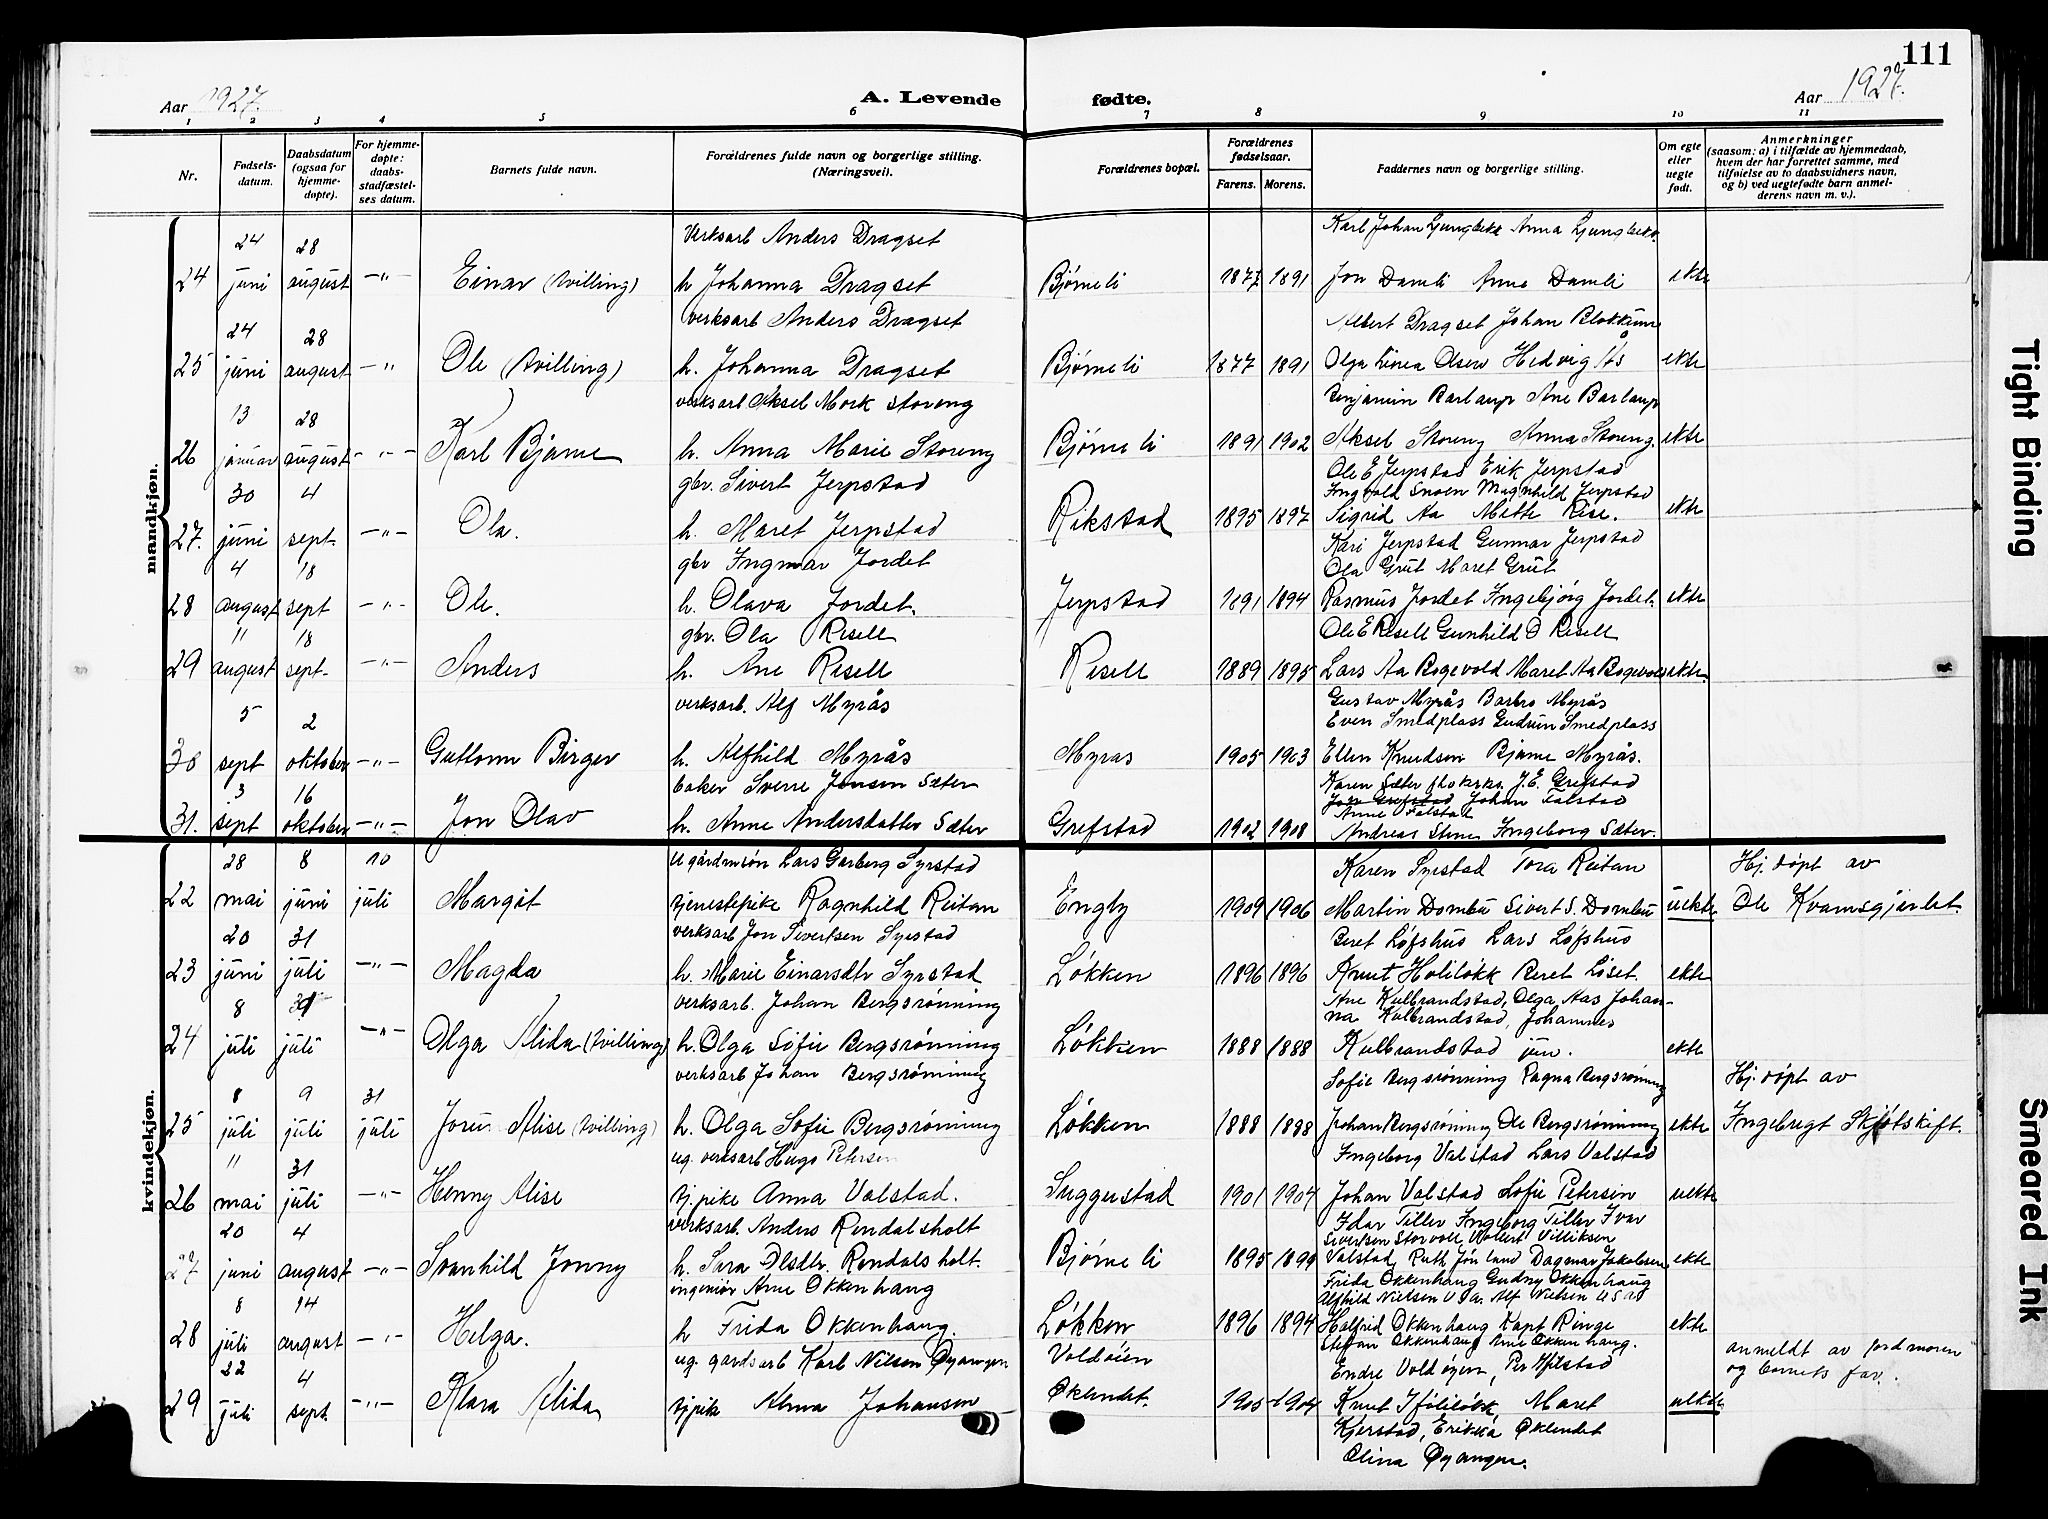 111
Aar 1927. A. Levende fødte. Aar 1927.
1 2 3 4 5 6 7 8 9 10 11
Nr. Fødselsdatum. Daabsdatum (ogsaa for hjemmedøpte). For hjemmedøpte: daabsstadfæstelses datum. Barnets fulde navn. Forældrenes fulde navn og borgerlige stilling. (Næringsvei). Forældrenes bopæl. Forældrenes fødselsaar. Farens. Morens. Faddernes navn og borgerlige stilling. Om egte eller uegte født. Anmerkninger (saasom: a) i tilfælde av hjemmedaab, hvem der har forrettet samme, med tilføielse av to daabsvidners navn, og b) ved uegtefødte barn anmelderens navn m. v.).
mandkjøn.
24 28 Verksarb Anders Dragset Karl Johan Ljungbekk Anna Ljungbekk
24 juni august -"- Einar (tvilling) h Johanna Dragset Bjørneli 1877 1891 Jon Damli Anne Damli ekte
24 28 verksarb Anders Dragset Albert Dragset Johan Blokkum
25 juni august -"- Ole (tvilling) h. Johanna Dragset Bjørneli 1877 1891 Olga Linea Olsen Hedvig Ås ekte
13 28 verksarb Aksel Mork Storeng Benjamin Barlaup Ane Barlaup
26 januar august -"- Karl Bjarne h. Anna Marie Storeng Bjørneli 1891 1902 Aksel Storeng Anna Storeng. ekte
30 4 gbr. Sivert Jerpstad Ole E Jerpstad Erik Jerpstad
Ingvald Snoen Magnhild Jerpstad
27. juni sept. -"- Ola. h. Maret Jerpstad Rikstad 1895 1897 Sigrid Aa Mette Rise. ekte
4 18 gbr Ingmar Jordet Kari Jerpstad Gunnar Jerpstad
Ola Grut Maret Grut
28 august sept -"- Ole. h. Olava Jordet. Jerpstad 1891 1894 Rasmus Jordet Ingebjørg Jordet. ekte
11 18 gbr. Ola Risell Ole E Risell Gunhild O Risell
29 august sept. -"- Anders h. Ane Risell Risell 1889 1895 Lars Aa Bogevold Maret Aa Bogevold ekte.
5 2 verksarb. Alf Myrås Gustav Myrås Barbro Myrås
Even Smedplass Gudrun Smedplass
30 sept oktober -"- Guttorm Birger h. Alfhild Myrås Myras 1905 1903 Ellen Knudsen Bjarne Myrås.
3 16 baker Sverre Jensen Sæter Karen Sæter J. E. Grefstad
Johan Falstad
Anne Falstad
31. sept oktober -"- Jon Olav h. Anne Andersdatter Sæter Grefstad 1902 1908 Andreas Stene Ingeborg Sæter.
kvindekjøn.
28 8 10 u gårdmsøn Lars Garberg Syrstad Karen Syrstad Tora Reitan Hj. døpt av
22 mai juni juli Margit tjenestepike Ragnhild Reitan Engby 1909 1906 Martin Dombu Sivert S. Dombu uekte Ole Kvamsgjerdet.
20 31 verksarb Jon Sivertsen Syrstad Beret Løfshus Lars Løfshus
23 juni juli -"- Magda h. Marie Einarsdtr Syrstad Løkken 1896 1896 Knut Holiløkk Beret Løset. ekte
8 31 verksarb. Johan Bergsrønning Ane Kulbrandstad, Olga Aas Johan-
na Kulbrandstad, Johannes
24 juli juli -"- Olga Alida (tvilling) h. Olga Sofie Bergsrønning Løkken 1888 1888 Kulbrandstad jun. ekte
8 9 31 verksarb Johan Bergsrønning Sofie Bergsrønning Ragna Bergsrønning Hj. døpt av
25 juli juli juli Jorun Alise (tvilling) h. Olga Sofie Bergsrønning Løkken 1888 1888 Johan Bergsrønning Ole Bergsrønning ekte Ingebregt Skjøtskift.
11 31 ug. verksarb Hugo Petersen Ingeborg Valstad Lars Valstad
26 mai juli -"- Henny Alise tj.pike Anna Valstad. Suggustad 1901 1904 Johan Valstad Sofie Petersen uekte
20 4 verksarb. Anders Rendalsholt Idar Tiller Ingeborg Tiller Ivar
Sivertsen Storvoll, Villiksen
27 juni august -"- Svanhild Jonny h. Sara Olsdtr. Rendalsholt. Bjørneli 1895 1899 Valstad, Ruth Dagmar Jakobsen ekte
8 14 ingeniør Arne Okkenhaug Frida Okkenhaug Gudny Okkenhaug
Alfhild Nielsen U S A. Alf Nielsen U S A
28 juli august -"- Helga. h Frida Okkenhaug. Løkken 1896 1894 Halfrid Okkenhaug Kapt Ringe ekte
Stefan Okkenhaug Arne Okkenhaug.
22 4 ug. gardsarb Karl Nilsen Øyangen Voldøien Endre Voldøyen, Per Hilstad anmeldt av jordmoren
og barnets far.
29 juli sept. -"- Klara Alida tjpike Alma Johansen Øklendet. 1905 1904 Knut Holiløkk, Maret uekte
Kjerstad, Erikka Øklendet
Olina Øyangen.
Tight Binding
Smeared Ink